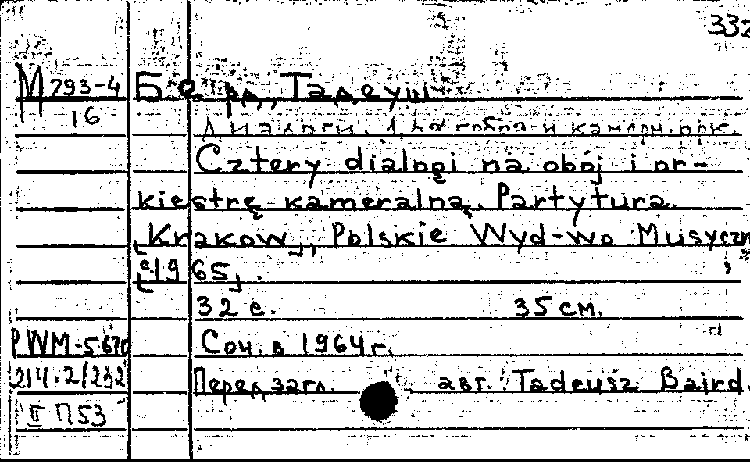 332
М 793-4 Бэрд, Тадеуш
16
Диалоги. Для гобоя и камерн. орк.
Cztery dialogi na obój i or-
kiestrę kameralną. Partytura.
[Krakow], Polskie Wyd-wo Muzyczn
[c1965].
32 с. 35 см.
PWM-5670 Соч. в 1964 г.
214.2/232 Перед загл. авт.: Tadeusz Baird.
II П53